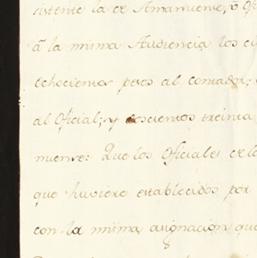 sistente la de Amanuense, ô Of
â la misma Audiencia los
ochocientos pesos al contador,
al Oficial; y doscientos treinta
nuense: Que los Oficiales de lo
que huviere establecidos por
con la misma asignacion que